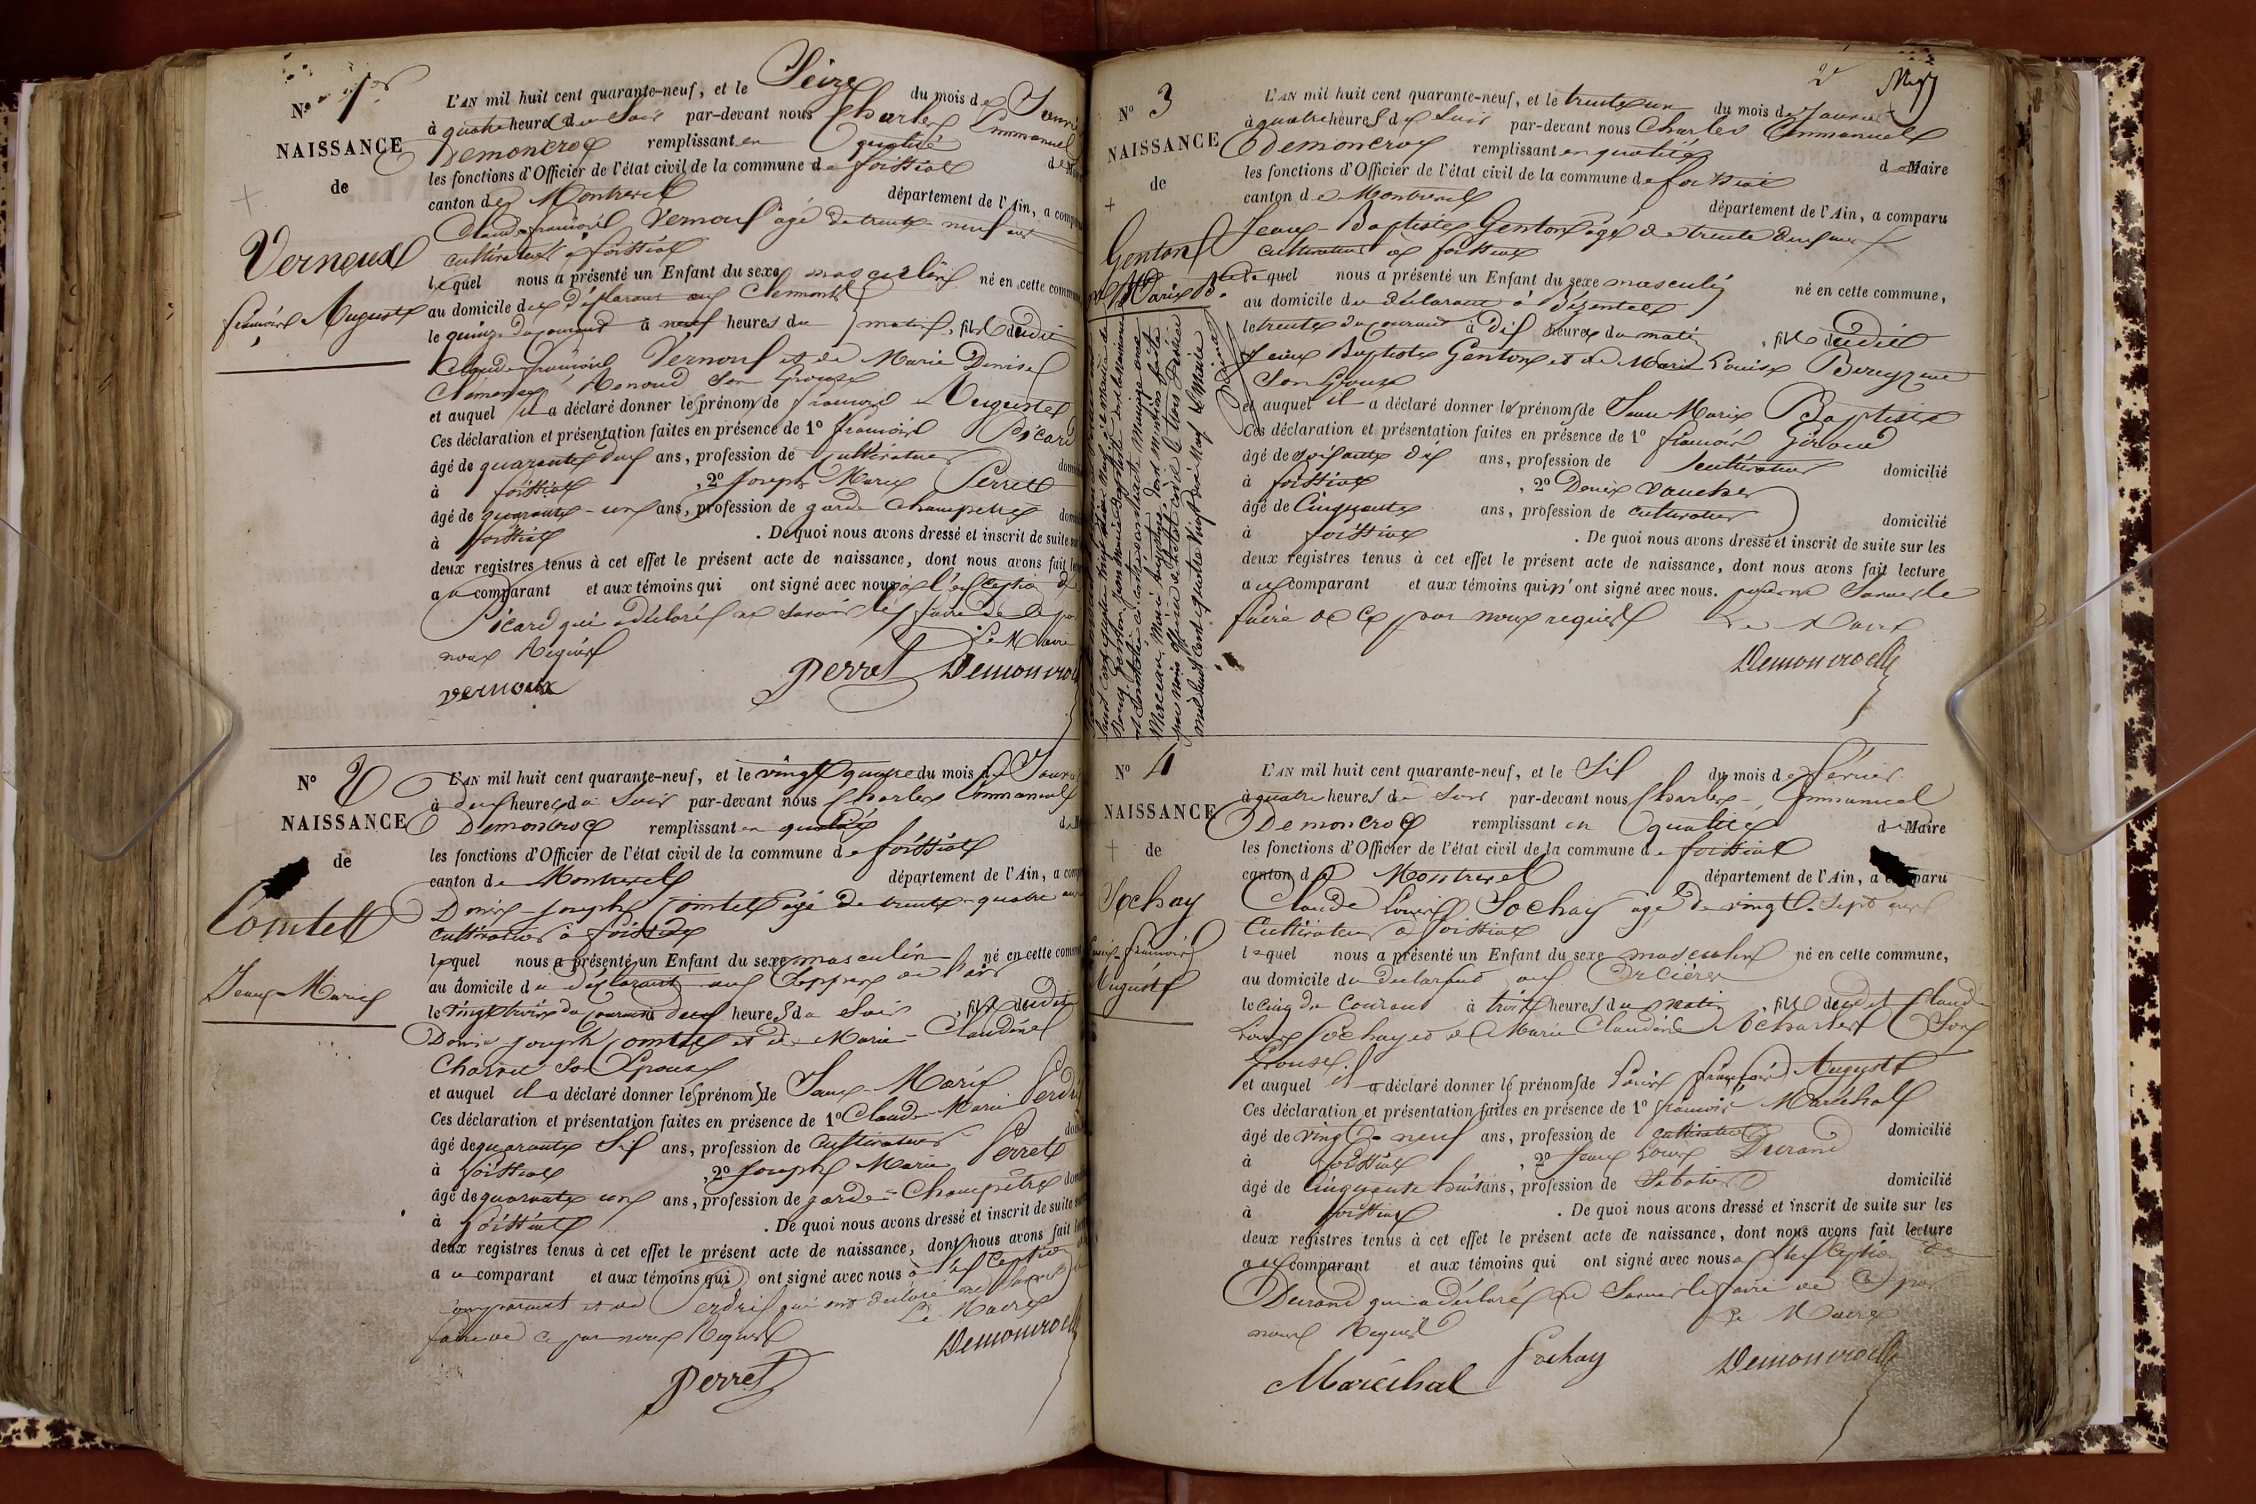 N° 1er
NAISSANCE
de
Vernoux
françois Auguste
L'AN mil huit cent quarante-neuf, et le Seize du mois de Janv
à quatre heures du Soir par-devant nous Charles Emmanuel
Demoncroq remplissant en qualité de Mai
les fonctions d'Officier de l'état civil de la commune de foissiat
canton de Montrevel département de l'Ain, a compar
Claude françois Vernoux âgé de trente-neuf ans
cultivateur à foissiat
lequel nous a présenté un Enfant du sexe masculin né en cette commune
au domicile du déclarant aux
le quinze du courant à neuf heures du matin, fils dudit
Claude françois Vernoux et de Marie Denise
Clémence Renoud Son Epouse
et auquel il a déclaré donner les prénoms de françois Auguste
Ces déclaration et présentation faites en présence de 1° francois Picard
âgé de quarante deux ans, profession de cultivateur domi
à foissiat, 2° Joseph Marie Perret
âgé de quarante-un ans, profession de garde Champetre domi
à foissiat. De quoi nous avons dressé et inscrit de suite sur
deux registres tenus à cet effet le présent acte de naissance, dont nous avons fait le
au comparant et aux témoins qui ont signé avec nous à l'exception de
Picard qui a déclaré ne savoir le faire de ce par
nous Requis Le Maire
vernoux Perret Demoncro
N° 2
NAISSANCE
de
Comtet
Jean-Marie
L'AN mil huit cent quarante-neuf, et le vingt quatre du mois de Janv
à deux heures du Soir par-devant nous Charles Emmanuel
Demoncroq remplissant en qualité de M
les fonctions d'Officier de l'état civil de la commune de foissiat
canton de Montrevel département de l'Ain, a comp
Denis-Joseph Comtet âgé de trente-quatre ans
cultivateur à foissiat
lequel nous a présenté un Enfant du sexe masculin né en cette commu
au domicile du déclarant aux
le vingt trois du courant deux heures du Soir, fils dudit
Denis-Joseph Comtet et de Marie-Claudine
Charvet Son Epouse
et auquel il a déclaré donner les prénoms de Jean Marie
Ces déclaration et présentation faites en présence de 1° Claude-Marie Perdrix
âgé de quarante Six ans, profession de cultivateur dom
à foissiat, 2° Joseph Marie Perret
âgé de quarante un ans, profession de garde-Champêtre dom
à foissiat. De quoi nous avons dressé et inscrit de suite sur
deux registres tenus à cet effet le présent acte de naissance, dont nous avons fait lect
au comparant et aux témoins qui ont signé avec nous à l'exception du
comparant et de Perdrix qui ont déclaré ne Savoir le
faire de ce par nous Requis Le Maire
Perret Demoncro
2e
N° 3
NAISSANCE
de
Genton
Jean Marie Bte
L'AN mil huit cent quarante-neuf, et le trente un du mois de Janvier
à quatre heures du Soir par-devant nous Charles Emmanuel
Demoncroq remplissant en qualité de Maire
les fonctions d'Officier de l'état civil de la commune de foissiat
canton de Montrevel département de l'Ain, a comparu
Jean-Baptiste Genton âgé de trente deux ans
cultivateur à foissiat
lequel nous a présenté un Enfant du sexe masculin né en cette commune,
au domicile du déclarant à Bézentet
le trente du courant à Dix heures du matin, fils dudit
Jean Baptiste Genton et de Marie Louise Bereyziat
Son Epouse
et auquel il a déclaré donner les prénoms de Jean Marie Baptiste
Ces déclaration et présentation faites en présence de 1° françois Giroud
âgé de soixante dix ans, profession de cultivateur domicilié
à foissiat, 2° Denis Vaucher
âgé de Cinquante ans, profession de cultivateur domicilié
à foissiat. De quoi nous avons dressé et inscrit de suite sur les
deux registres tenus à cet effet le présent acte de naissance, dont nous avons fait lecture
au comparant et aux témoins qui n'ont signé avec nous. pour ne Savoir le
faire de ce par nous requis Le Maire
Demoncroq
N° 4
NAISSANCE
de
Sochay
Louis-françois
Auguste
L'AN mil huit cent quarante-neuf, et le Six du mois de février
à quatre heures du Soir par-devant nous Charles-Emmanuel
Demoncroq remplissant en qualité de Maire
les fonctions d'Officier de l'état civil de la commune de foissiat
canton de Montrevel département de l'Ain, a comparu
Claude Louis Sochay âgé de vingt-Sept ans
Cultivateur à foissiat
lequel nous a présenté un Enfant du sexe masculin né en cette commune,
au domicile du déclarant aux
le cinq du courant à trois heures du matin, fils dudit Claude
Louis Sochay et de Marie Claudine Son
Epouse
et auquel il a déclaré donner les prénoms de Louis françois Auguste
Ces déclaration et présentation faites en présence de 1° francois Maréchal
âgé de vingt-neuf ans, profession de cultivateur domicilié
à foissiat, 2° Jean Louis Durand
âgé de Cinquante huit ans, profession de Sabotier domicilié
à foissiat. De quoi nous avons dressé et inscrit de suite sur les
deux registres tenus à cet effet le présent acte de naissance, dont nous avons fait lecture
au comparant et aux témoins qui ont signé avec nous à l'exception de
Durand qui a déclaré ne Savoir le faire de ce par
nous Requis Le Maire
Maréchal Sochay Demoncroq